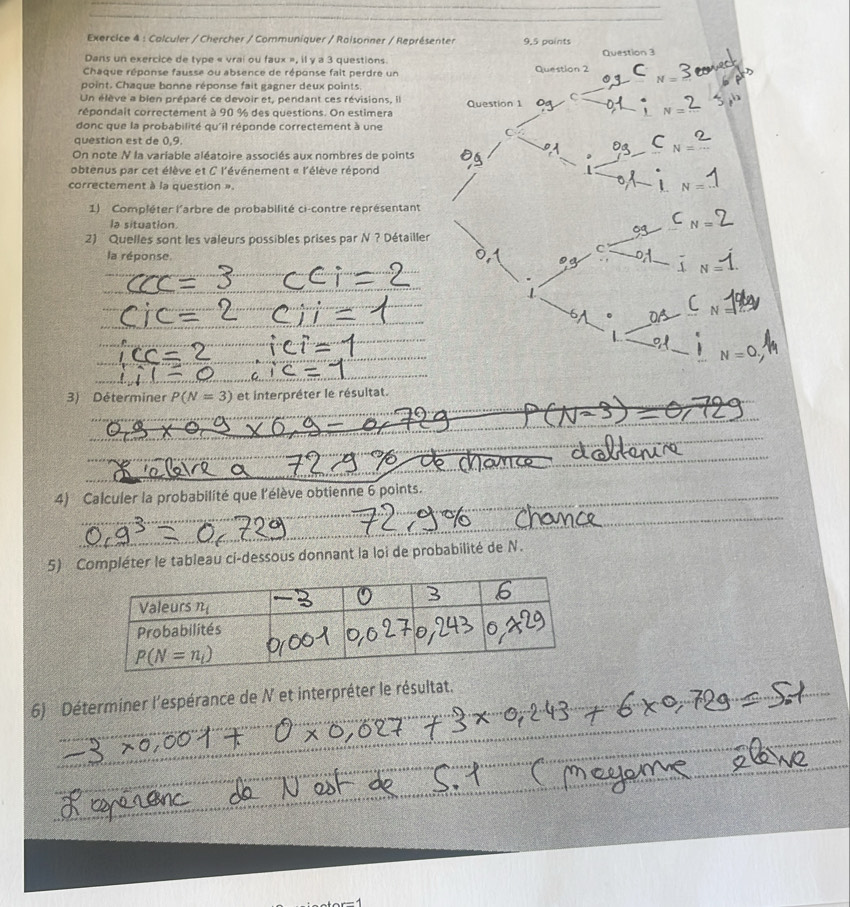 Exercice 4 : Calculer / Chercher / Communiquer / Raisonner / Représenter 9,5 points
Dans un exercice de type « vrai ou faux », il y a 3 questions.
Chaque réponse fausse ou absence de réponse fait perdre un
point. Chaque bonne réponse fait gagner deux points.
Un élève a bien préparé ce devoir et, pendant ces révisions, il
répondait correctement à 90 % des questions. On estimera
donc que la probabilité qu'il réponde correctement à une
question est de 0,9.
On note N la variable aléatoire associés aux nombres de points
obtenus par cet élève et C l'événement « l'élève répond
correctement à la question ».
Question 1
Question 2
Question 3
0,9 C N = 3 correct
0,9 C 0,1 i N = 2
C 0,9 C N = 2
0,9 0,1 i 0,1 i N = 1
0,9 C N = 2
0,1 0,9 C 0,1 i N = 1
i 0,9 C N
0,1 i 0,1 i N = 0
1) Compléter l'arbre de probabilité ci-contre représentant
la situation.
2) Quelles sont les valeurs possibles prises par N ? Détailler
la réponse.
CCC = 3 CCi = 2
CiC = 2 Cii = 1
iCC = 2 iCi = 1
iii = 0 iiC = 1
3) Déterminer P(N = 3) et interpréter le résultat.
0,9 × 0,9 × 0,9 = 0,729 P(N=3) = 0,729
L'élève a 72,9 % de chance d'obtenire
4) Calculer la probabilité que l'élève obtienne 6 points.
0,9³ = 0,729 72,9% chance
5) Compléter le tableau ci-dessous donnant la loi de probabilité de N.
Valeurs nᵢ -3 0 3 6
Probabilités P(N = nᵢ) 0,001 0,027 0,243 0,729
6) Déterminer l'espérance de N et interpréter le résultat.
-3 × 0,001 + 0 × 0,027 + 3 × 0,243 + 6 × 0,729 = 5.1
L'esperanc de N est de 5.1 ( moyenne élève